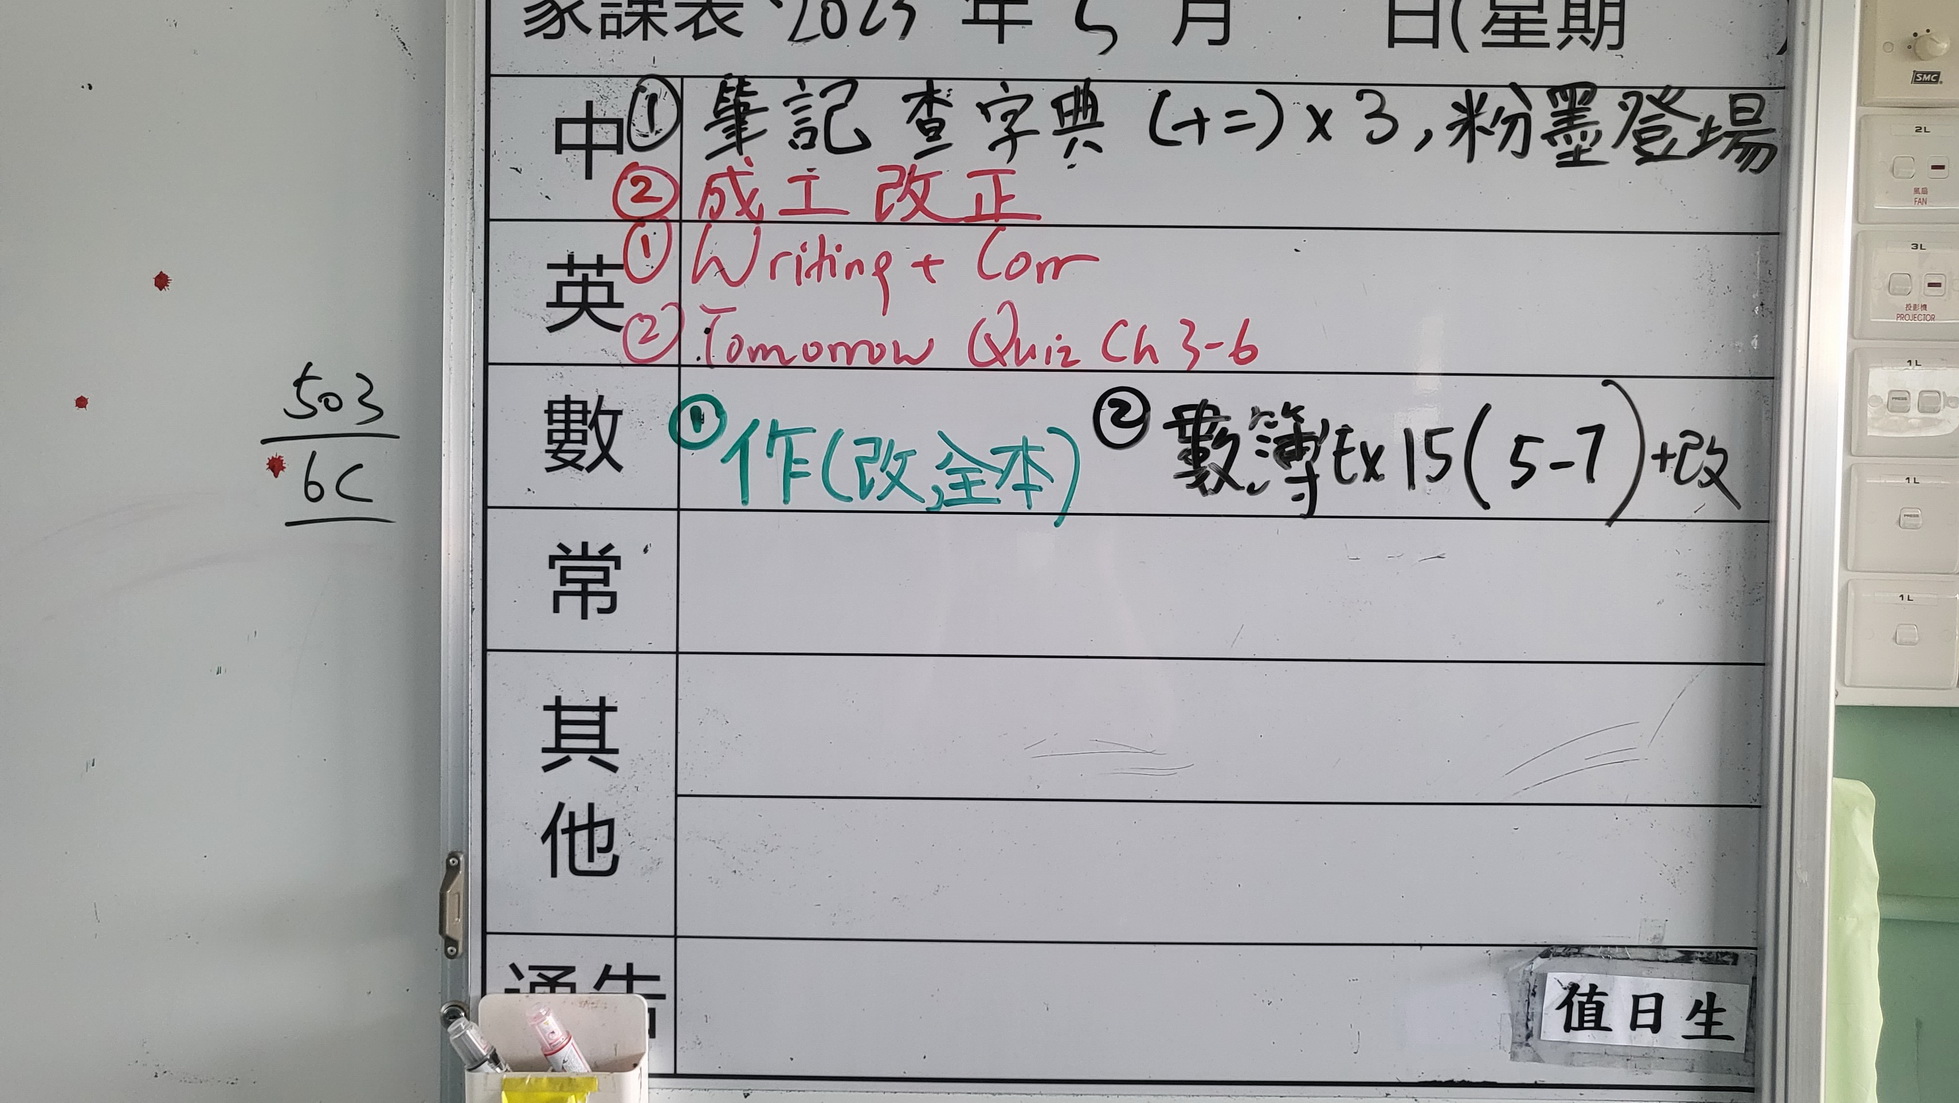 家課表 2023 年 5 月 日(星期 )
中 ① 筆記 查字典 (十二) x 3, 粉墨登場
② 成工改正
英 ① Writing + Corr
② Tomorrow Quiz Ch 3-6
數 ① 作(改,全本) ② 數簿 Ex 15 (5-7) +改
常
其他
通告
值日生
503
6C
SMC
2L
風扇
FAN
3L
投影機
PROJECTOR
1L
PRESS
1L
PRESS
1L